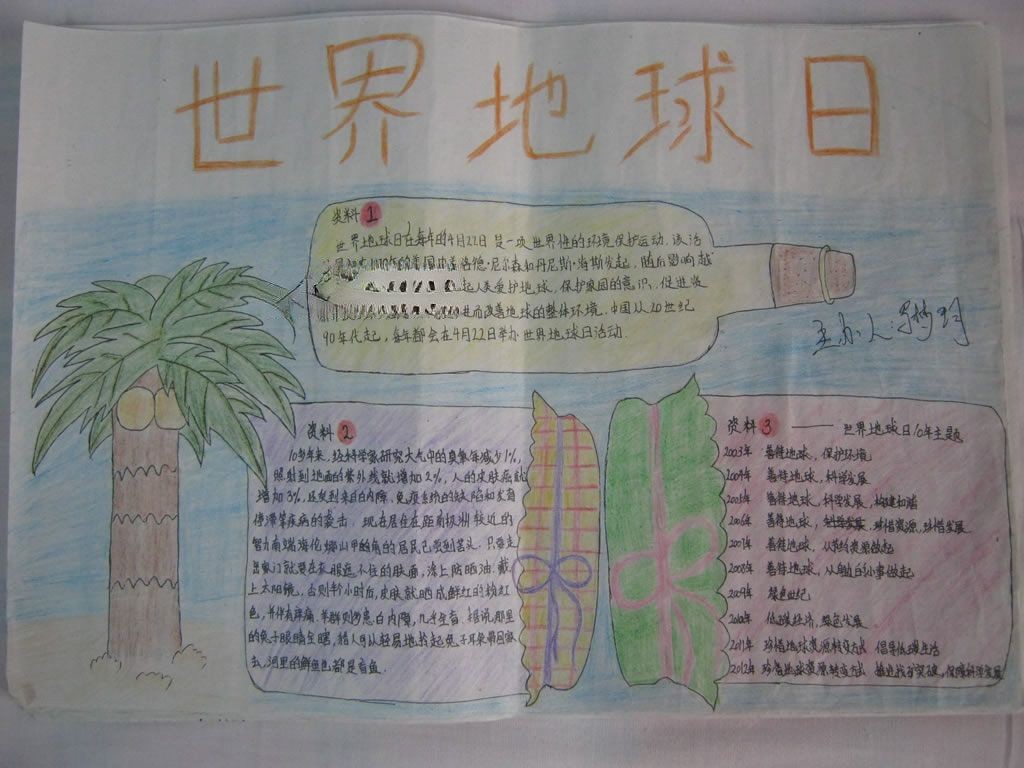 世界地球日
资料1
世界地球日在每年的4月22日是一项世界性的环境保护运动.该活
尼尔森和丹尼斯·海斯发起,随后影响越
起人类爱护地球,保护家园的意识,促进资
进而改善地球的整体环境.中国从20世纪
90年代起,每年都会在4月22日举办世界地球日活动.
主办人:
资料2
10多年来,经科学家研究大气中的臭氧每年减少1%,
照射到地面的紫外线就增加2%,人的皮肤癌就
增加3%,还受到来自白内障,免疫系统的缺陷和发育
停滞等疾病的袭击.现在居住在距南极洲较近的
智力南端海伦娜山甲的角的居民已尝到苦头,只要走
出家门就要在衣服遮不住的肤面,涂上防晒油.戴
上太阳镜,否则半小时后,皮肤就晒成鲜红的粉红
色,并伴有痒痛.羊群则多患白内障,几乎全盲.据说那里
的兔子眼睛全瞎,猎人可以轻易地拎起兔子耳朵带回家
去,河里的鲜鱼也都是盲鱼.
资料3 —— 世界地球日10年主题
2003年 善待地球,保护环境
2004年 善待地球,科学发展
2005年 善待地球,科学发展,构建和谐
2006年 善待地球,珍惜资源,持续发展
2007年 善待地球,从节约资源做起
2008年 善待地球,从身边的小事做起
2009年 绿色世纪
2010年 低碳经济,绿色发展
2011年 珍惜地球资源 转变方式 倡导低碳生活
2012年 珍惜地球资源 转变方式 推进找矿突破,保障科学发展